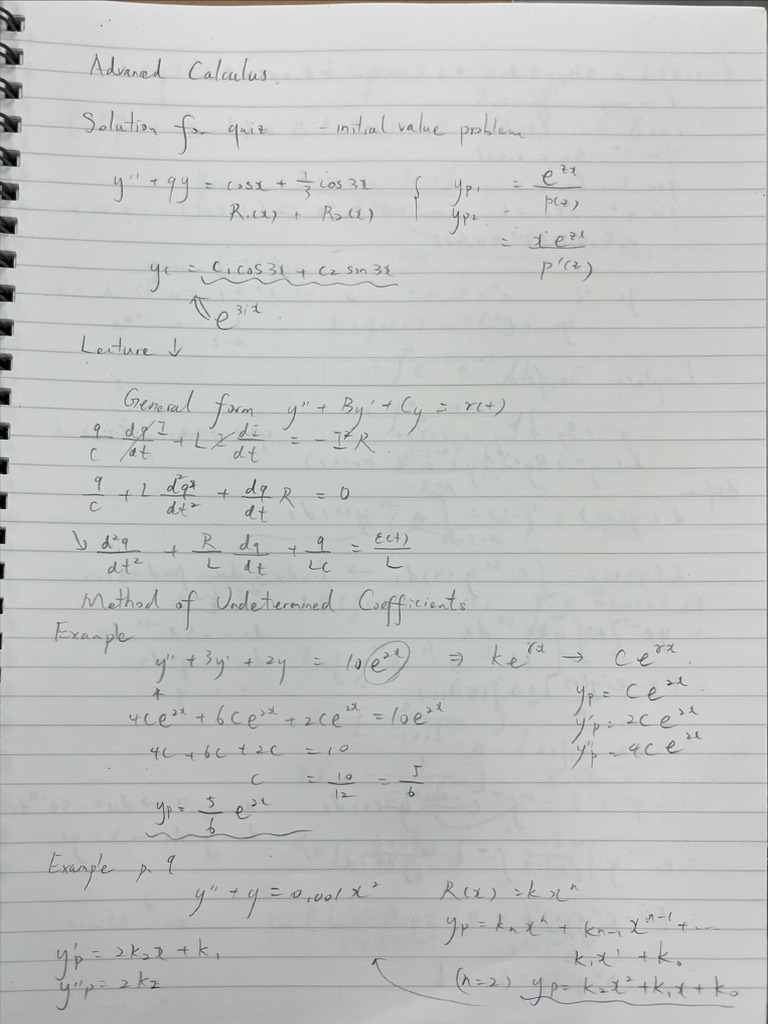 Advaned Calculus.
Solution for quiz - initial value problem
y'' + 9y = cosx + 1/3 cos 3x { yp1 = e^{zx} / p(z)
R1(x) + R2(x) yp2 = x e^{zx} / p'(z)
yc = C1 cos3x + C2 sin 3x
e^{3ix}
Lecture ↓
General form y'' + By' + Cy = r(t)
q/C dq/dt I + L I di/dt = - I² R
q/C + L d²q/dt² + dq/dt R = 0
↓ d²q/dt² + R/L dq/dt + q/LC = ε(t)/L
Method of Undetermined Coefficients
Example
y'' + 3y' + 2y = 10 e^{2x} ⇒ k e^{γx} → C e^{γx}
yp = C e^{2x}
4Ce^{2x} + 6Ce^{2x} + 2Ce^{2x} = 10e^{2x} y'p = 2C e^{2x}
4C + 6C + 2C = 10 y''p = 4C e^{2x}
C = 10/12 = 5/6
yp = 5/6 e^{2x}
Example p. 9
y'' + y = 0.001 x² R(x) = k x^n
yp = kn x^n + kn-1 x^{n-1} + ...
k1 x' + k0
y'p = 2k2x + k1
y''p = 2k2 (n=2) yp = k2x² + k1x + k0